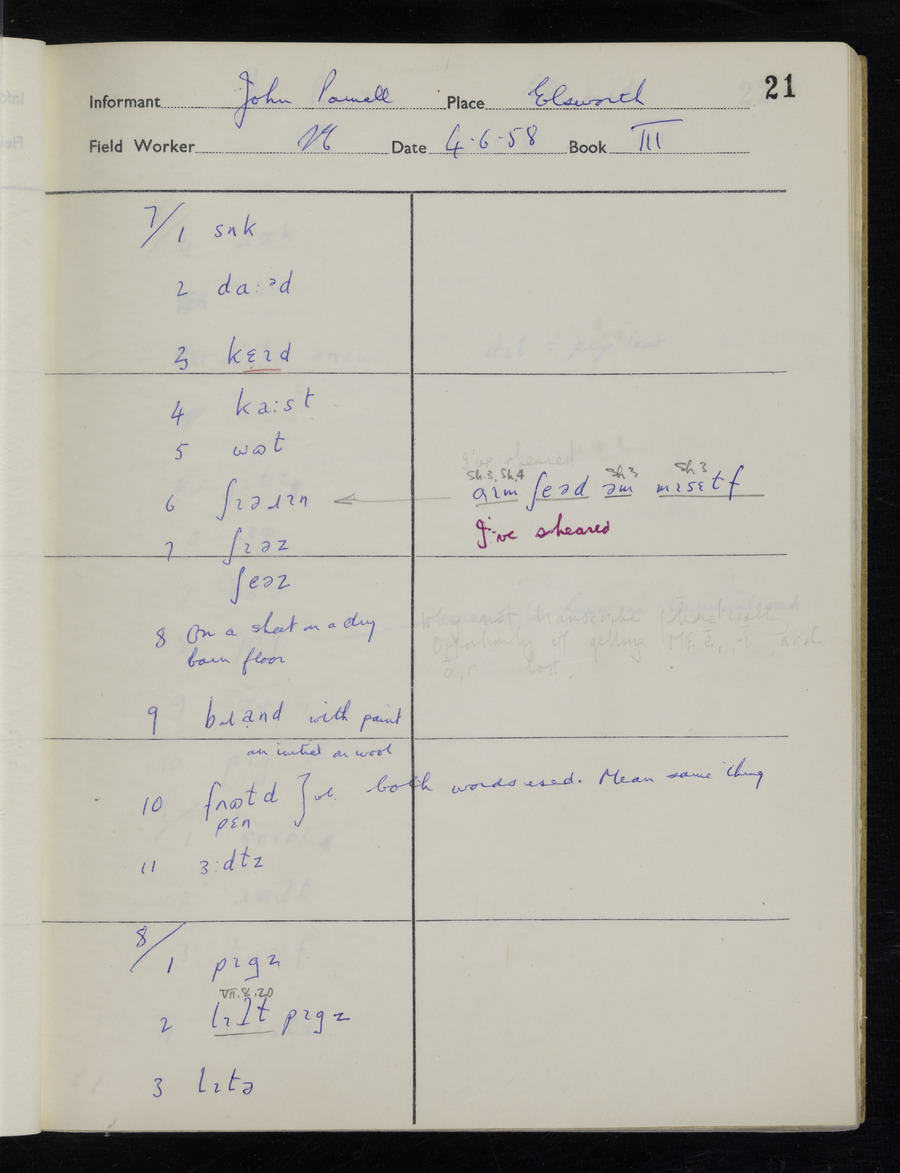 21
Informant John Pamell Place Elsworth
Field Worker Date 4.6.58 Book III
7/1 snk
2 da:ᵊd
3 kɛɪd
4 ka:st
5 wɷt
I've sheared
Sh.3, Sh.4 Sh 3 Sh 3
6 ʃɪəɹɪn ← aɪm ʃeəd əm mɪsɛtf
I've sheared
7 ʃɪəz
ʃeəz
8 On a sheet on a dry
barn floor
9 bɹand with paint
an initial on wool
10 fɹɷtd } both words used. Mean same thing
pɛn
11 ɜ:dtz
8/1 pɪgz
VII.8.20
2 lɪɫt pɪgz
3 lɪtə